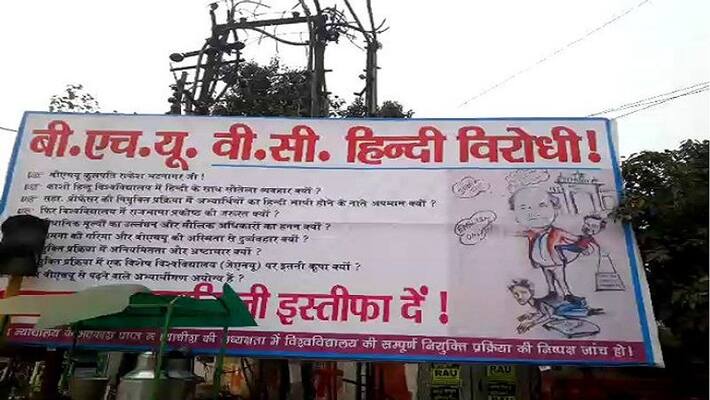 बी.एच.यू. वी.सी. हिन्दी विरोधी!
बीएचयू कुलपति राकेश भटनागर जी !
काशी हिन्दू विश्वविद्यालय में हिन्दी के साथ सौतेला व्यवहार क्यों ?
सहा. प्रोफेसर की नियुक्ति प्रक्रिया में अभ्यार्थियों का हिन्दी भाषी होने के नाते अपमान क्यों ?
फिर विश्वविद्यालय में राजभाषा प्रकोष्ठ की जरूरत क्यों ?
मूल्यों का उल्लंघन और मौलिक अधिकारों का हनन क्यों ?
की गरिमा और बीएचयू की अस्मिता से दुर्व्यवहार क्यों ?
प्रक्रिया में अनियमितता और भ्रष्टाचार क्यों ?
प्रक्रिया में एक विशेष विश्वविद्यालय (जेएनयू) पर इतनी कृपा क्यों ?
बीएचयू से पढ़ने वाले अभ्यार्थीगण अयोग्य हैं ?
इस्तीफा दें !
न्यायालय के अवकाश प्राप्त न्यायाधीश की अध्यक्षता में विश्वविद्यालय की सम्पूर्ण नियुक्ति प्रक्रिया की निष्पक्ष जांच हो !
RAU
RAU